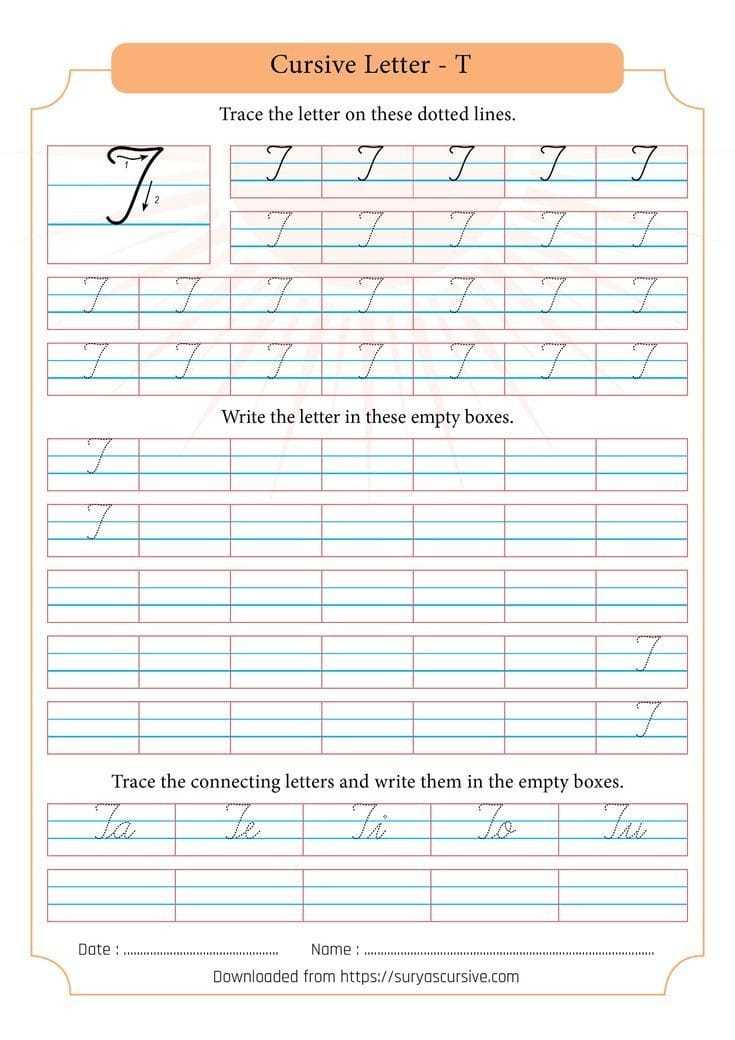 Cursive Letter - T
Trace the letter on these dotted lines.
T T T T T T
1
2
T T T T T
T T T T T T T
T T T T T T T
Write the letter in these empty boxes.
T
T
T
T
Trace the connecting letters and write them in the empty boxes.
Ta Te Ti To Tu
Date : ............................................... Name : ........................................................................................
Downloaded from https://suryascursive.com